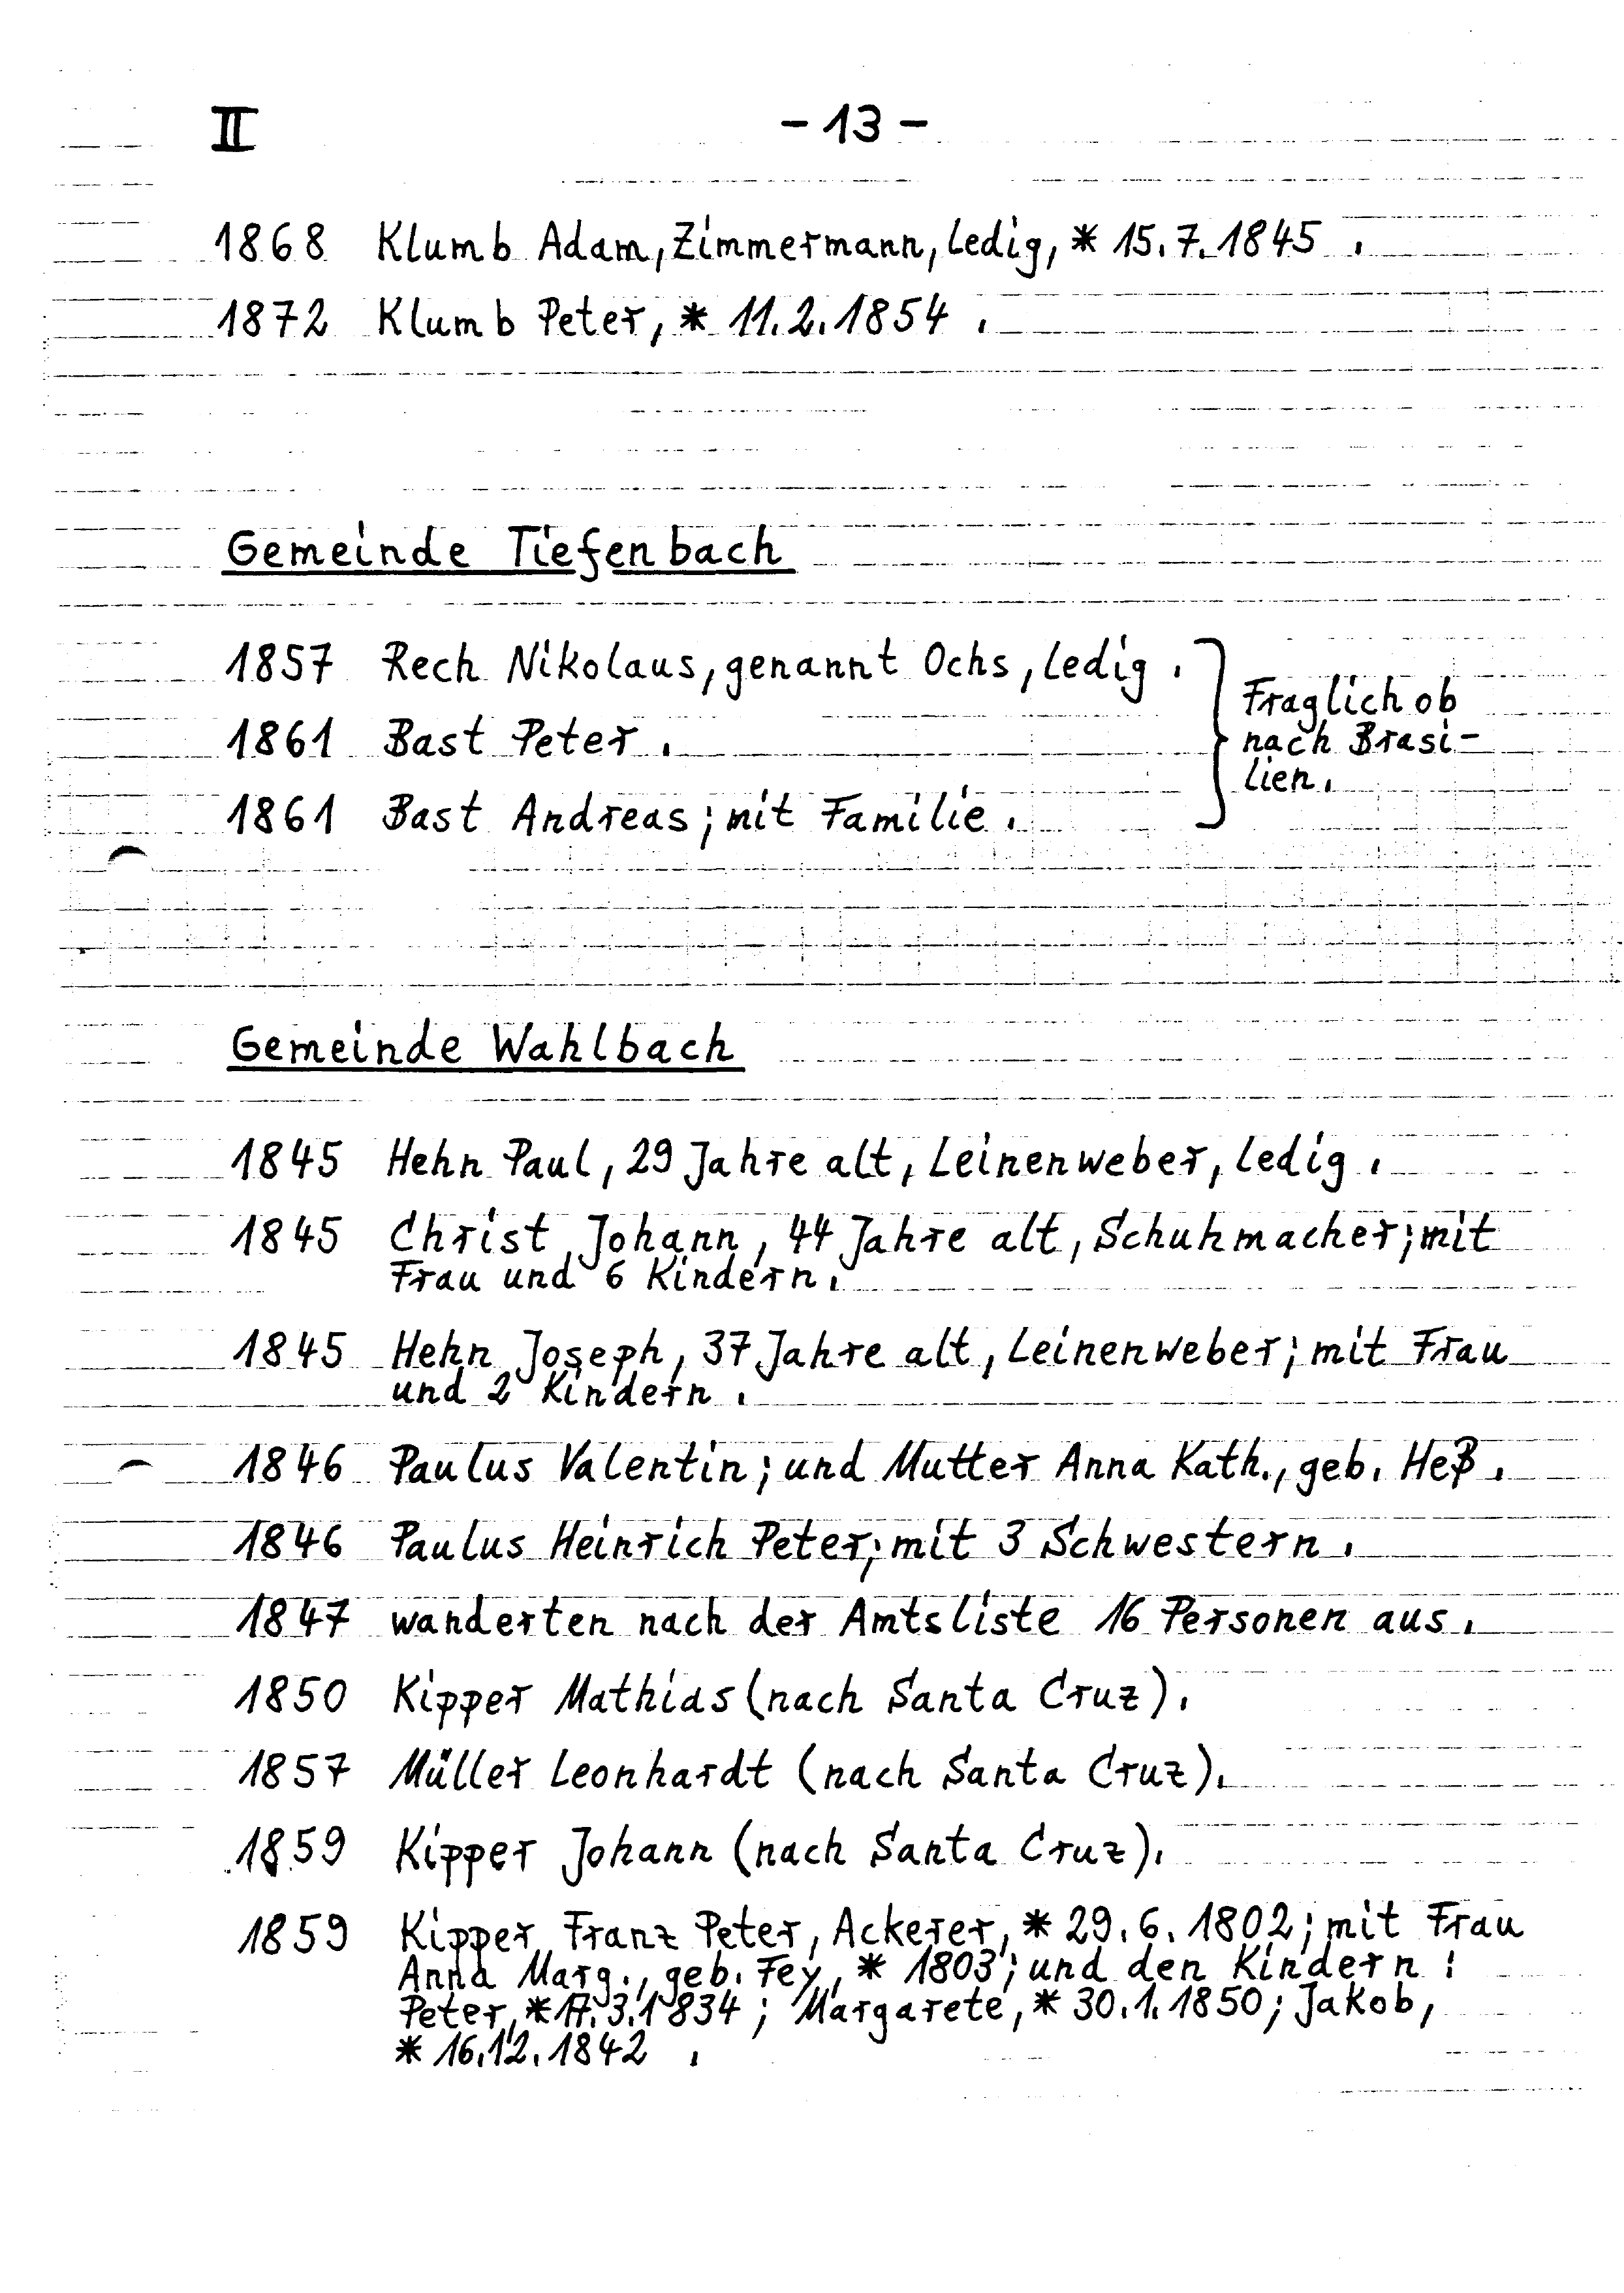 II - 13 -
1868 Klumb Adam, Zimmermann, ledig, * 15.7.1845 .
1872 Klumb Peter, * 11.2.1854 .
Gemeinde Tiefenbach
1857 Rech Nikolaus, genannt Ochs, ledig .
1861 Bast Peter .
1861 Bast Andreas; mit Familie .
Fraglich ob
nach Brasi-
lien.
Gemeinde Wahlbach
1845 Hehn Paul, 29 Jahre alt, Leinenweber, ledig .
1845 Christ Johann, 44 Jahre alt, Schuhmacher; mit
Frau und 6 Kindern.
1845 Hehn Joseph, 37 Jahre alt, Leinenweber; mit Frau
und 2 Kindern .
1846 Paulus Valentin; und Mutter Anna Kath., geb. Heß .
1846 Paulus Heinrich Peter; mit 3 Schwestern .
1847 wanderten nach der Amtsliste 16 Personen aus.
1850 Kipper Mathias (nach Santa Cruz).
1857 Müller Leonhardt (nach Santa Cruz).
1859 Kipper Johann (nach Santa Cruz).
1859 Kipper Franz Peter, Ackerer, * 29.6.1802; mit Frau
Anna Marg., geb. Fey, * 1803; und den Kindern :
Peter, * 17.3.1834 ; Margarete, * 30.1.1850; Jakob,
* 16.12.1842 .